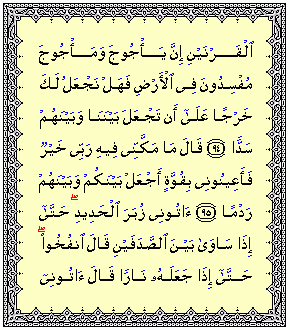 ٱلْقَرْنَيْنِ إِنَّ يَأْجُوجَ وَمَأْجُوجَ
مُفْسِدُونَ فِى ٱلْأَرْضِ فَهَلْ نَجْعَلُ لَكَ
خَرْجًا عَلَىٰٓ أَن تَجْعَلَ بَيْنَنَا وَبَيْنَهُمْ
سَدًّا ٩٤ قَالَ مَا مَكَّنِّى فِيهِ رَبِّى خَيْرٌ
فَأَعِينُونِى بِقُوَّةٍ أَجْعَلْ بَيْنَكُمْ وَبَيْنَهُمْ
رَدْمًا ٩٥ ءَاتُونِى زُبَرَ ٱلْحَدِيدِ ۖ حَتَّىٰٓ
إِذَا سَاوَىٰ بَيْنَ ٱلصَّدَفَيْنِ قَالَ ٱنفُخُوا۟ ۖ
حَتَّىٰٓ إِذَا جَعَلَهُۥ نَارًا قَالَ ءَاتُونِىٓ